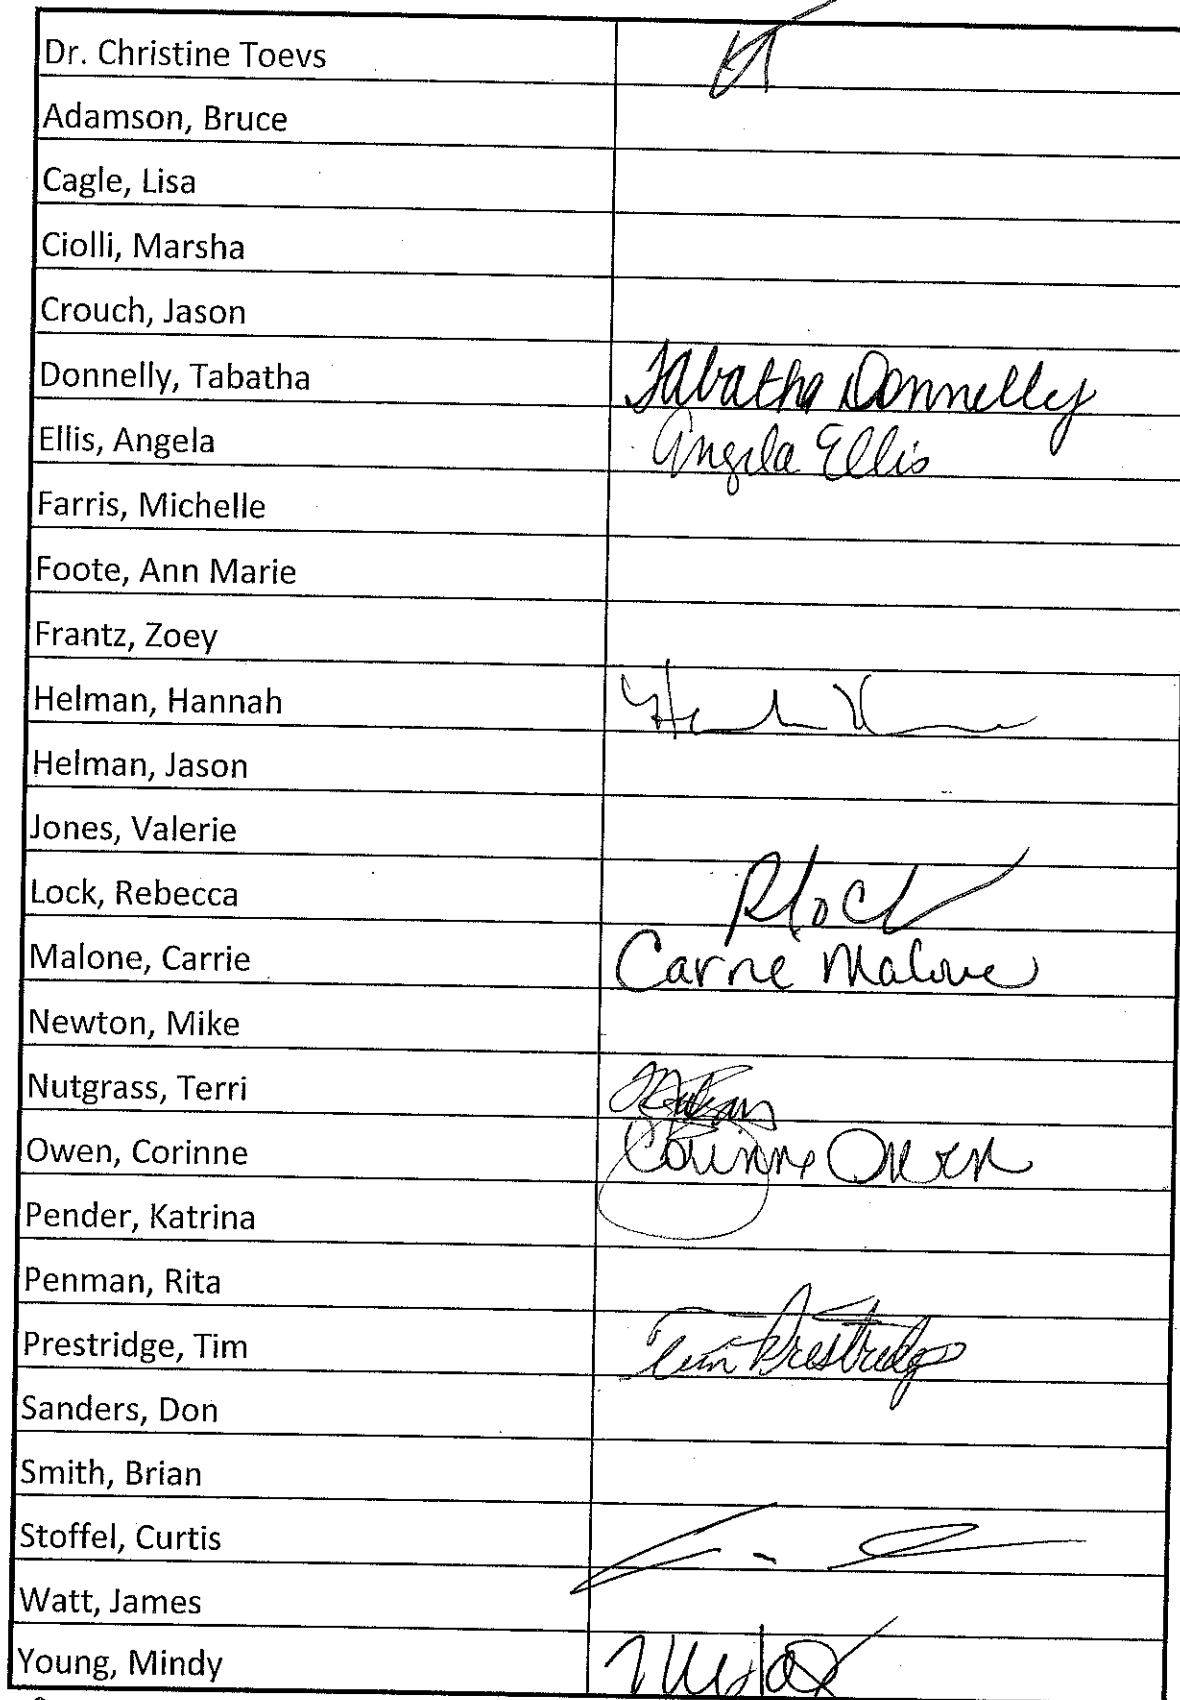 Dr. Christine Toevs
Adamson, Bruce
Cagle, Lisa
Ciolli, Marsha
Crouch, Jason
Donnelly, Tabatha Tabatha Donnelly
Ellis, Angela Angela Ellis
Farris, Michelle
Foote, Ann Marie
Frantz, Zoey
Helman, Hannah
Helman, Jason
Jones, Valerie
Lock, Rebecca RLock
Malone, Carrie Carrie Malone
Newton, Mike
Nutgrass, Terri
Owen, Corinne Corinne Owen
Pender, Katrina
Penman, Rita
Prestridge, Tim Tim Prestridge
Sanders, Don
Smith, Brian
Stoffel, Curtis
Watt, James
Young, Mindy